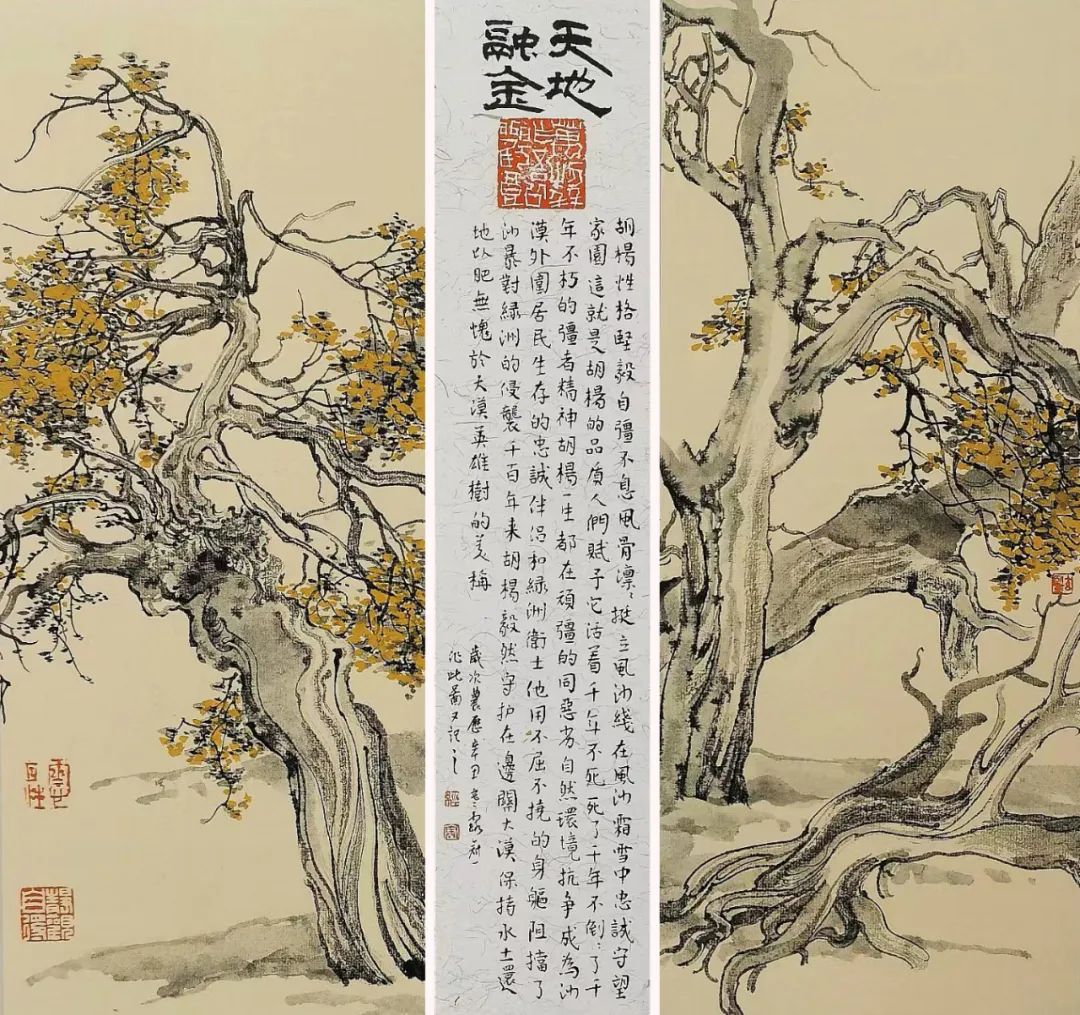 天地
融金
胡楊性格堅毅自彊不息風骨凛〻挺立風沙綫在風沙霜雪中忠誠守望
家園這就是胡楊的品質人們賦予它活着千年不死死了千年不倒〻了千
年不朽的彊者精神胡楊一生都在頑彊的同惡劣自然環境抗争成為沙
漠外圍居民生存的忠誠伴侣和綠洲衛士他用不屈不撓的身軀阻擋了
沙暴對綠洲的侵襲千百年来胡楊毅然守护在邊關大漠保持水土還
地以肥無愧於大漠英雄樹的美稱
歲次農歷辛丑
此圖又記之
靜觀
自得